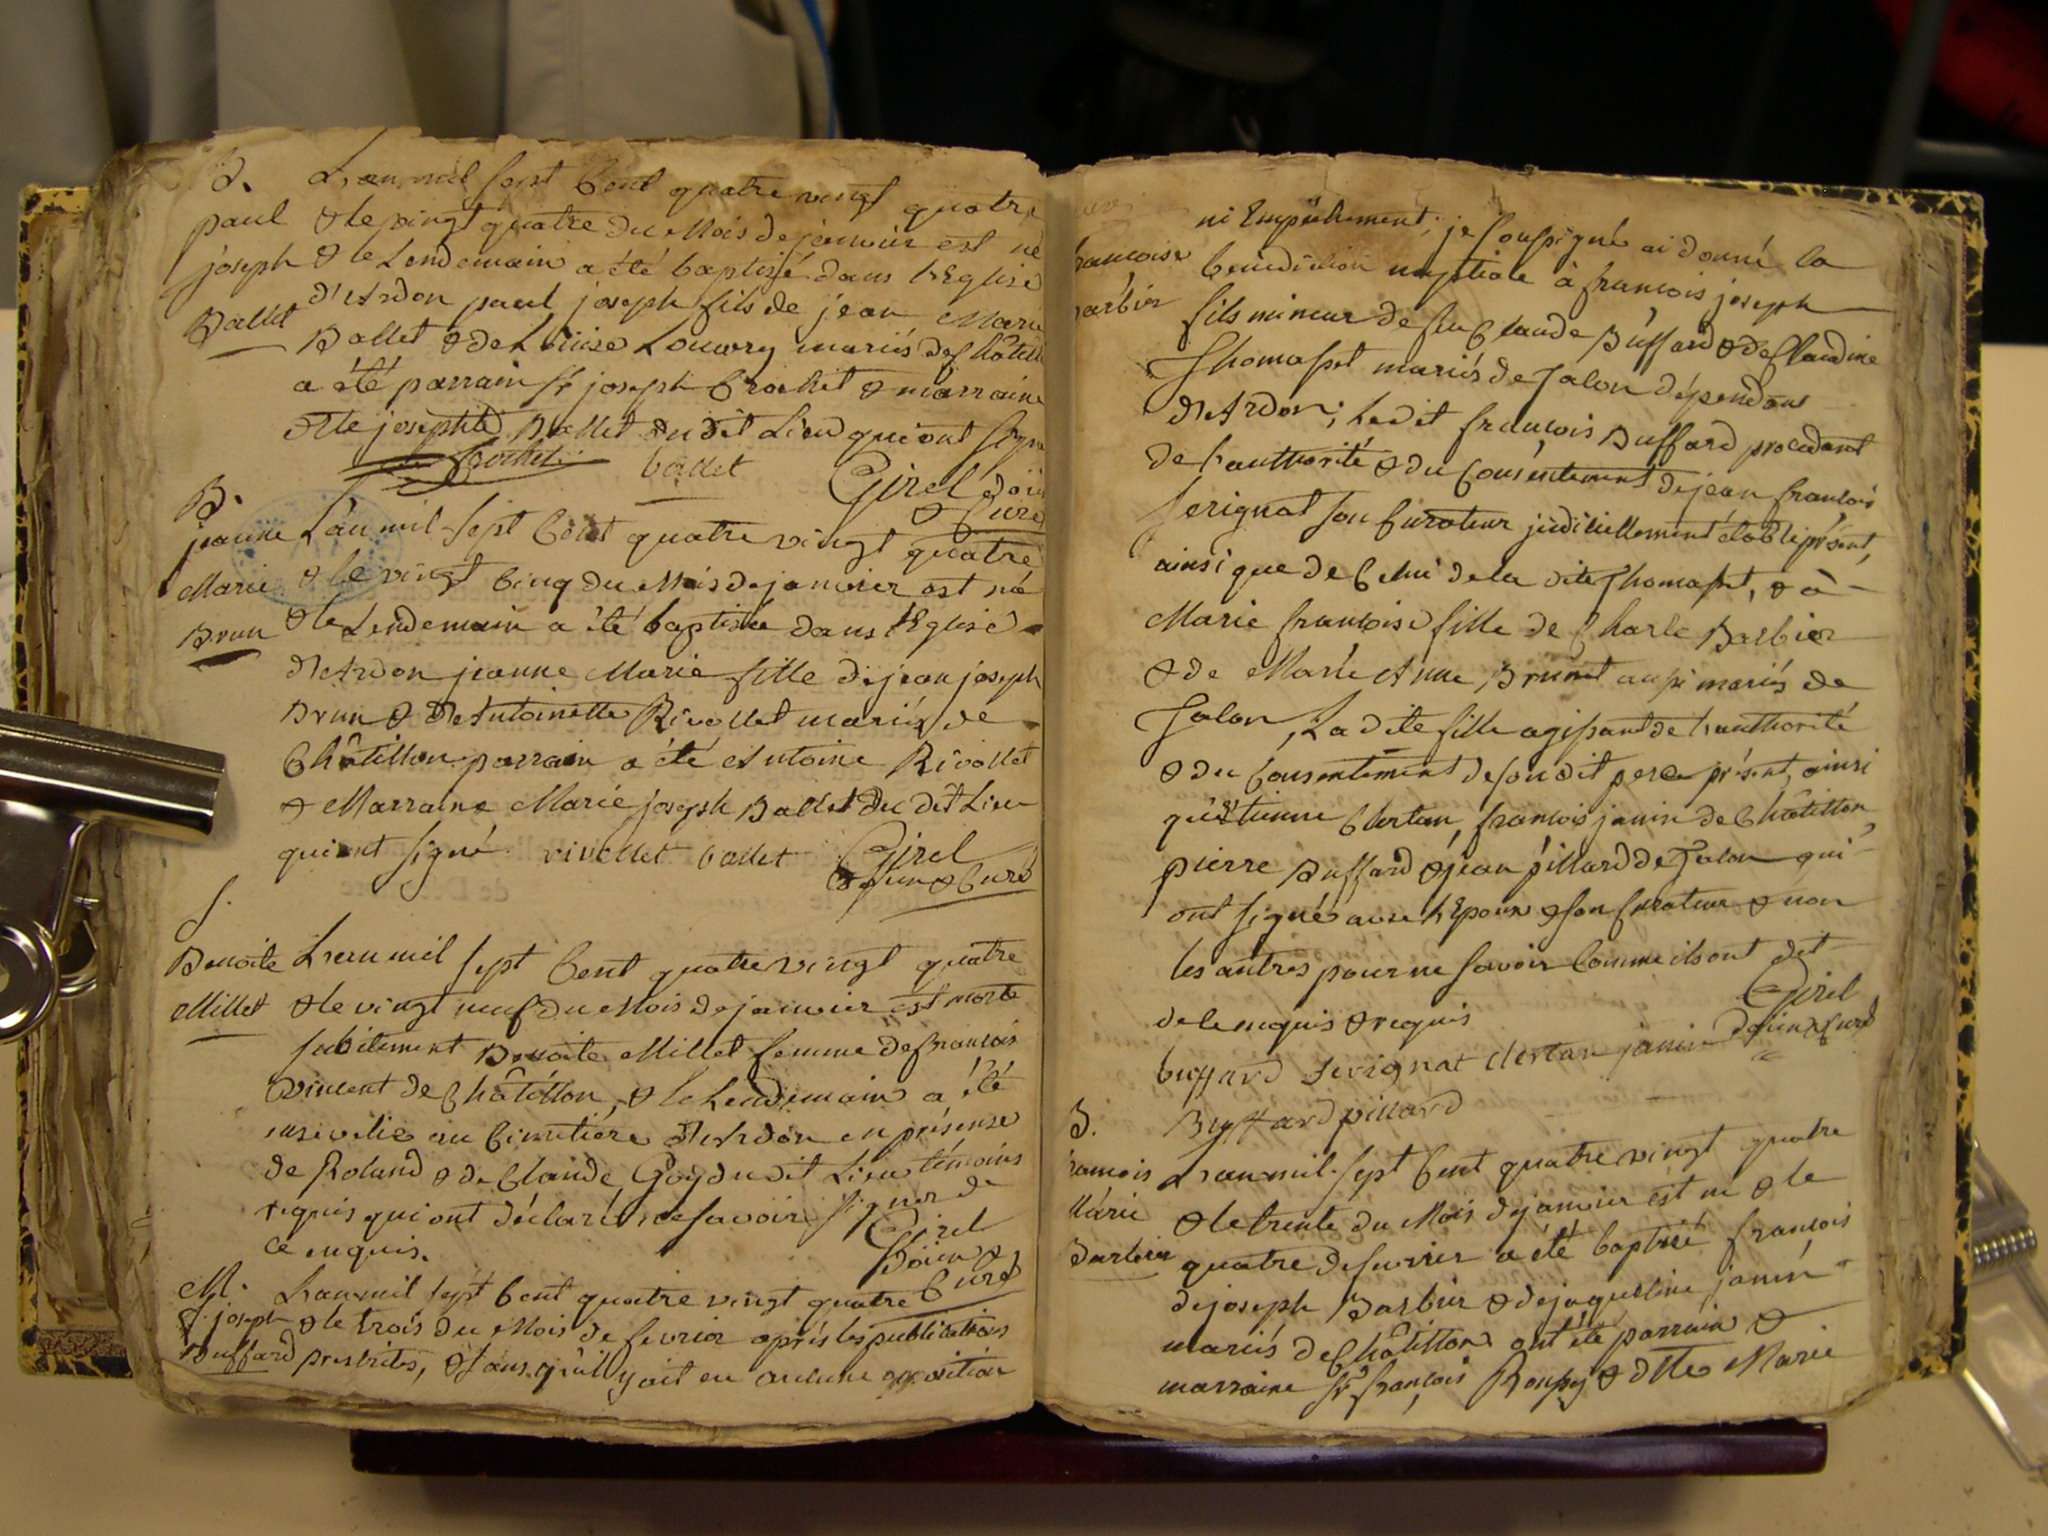 B. L'an mil sept Cent quatre vingt quatre
paul & le vingt quatre du Mois de janvier est né
joseph & le Lendemain a été baptisé dans l'Eglise
Ballet d'Ardon paul joseph fils de jean Marie
Ballet & de Louise Louvry mariés de Châtill
a été parrain Sr joseph Crochet & marraine
dlle josephte Ballet du dit Lieu qui ont signé
Crochet ballet Girel doïen
& Curé
B.
jeanne L'an mil sept Cent quatre vingt quatre
Marie & le vingt Cinq du Mois de janvier est née
Brun & le Lendemain a été baptisée dans l'Eglise
d'Ardon jeanne Marie fille de jean joseph
Brun & d'Antoinette Rivollet mariés de
Châtillon parrain a été Antoine Rivollet
& Marraine Marie joseph Ballet du dit Lieu
qui ont signé rivollet ballet Girel
doïen & Curé
S.
Benoite L'an mil sept Cent quatre vingt quatre
Millet & le vingt neuf du Mois de janvier est morte
subitement Benoite Millet femme de francois
Vincent de Châtillon, & le Lendemain a été
ensevelie au Cimetiere d'Ardon en présense
de Roland & de Claude Goy du dit Lieu témoins
requis qui ont déclaré ne savoir signer de
ce enquis. Girel
Doïen &
Curé
M. L'an mil sept Cent quatre vingt quatre
f. joseph & le trois du Mois de fevrier après les publications
Buffard prescrites, & sans qu'il y ait eu aucune opposition
ni Empêchement; je soussigné ai donné la
francoise bénédiction nuptiale à francois joseph
Barbier fils mineur de feu Claude Buffard & de Claudine
Thomasset mariés de Jalon dépendant
d'Ardon; Le dit francois Buffard procedant
de l'authorité & du Consentement de jean francois
Serignat son Curateur judiciellement établi présent,
ainsi que de Celui de la dite Thomasset, & à
Marie francoise fille de Charle Barbier
& de Marie Anne Brunet aussi mariés de
Jalon, La dite fille agissant de l'authorité
& du Consentement de son dit pere présent, ainsi
qu'étienne Clertan, francois janin de Châtillon,
pierre Buffard & jean pillard de Jalon qui
ont signé avec l'Epoux & son Curateur & non
les autres pour ne savoir Comme ils ont dit
de le enquis & requis Girel
buffard Serignat Clertan janin doïen & Curé
Buffard pillard
B.
francois L'an mil sept Cent quatre vingt quatre
Marie & le trente du Mois de janvier est né & le
Barbier quatre de fevrier a été baptisé francois
de joseph Barbier & de jaqueline janin
mariés de Châtillon ont été parrain &
marraine Sr francois Roussy & dlle Marie